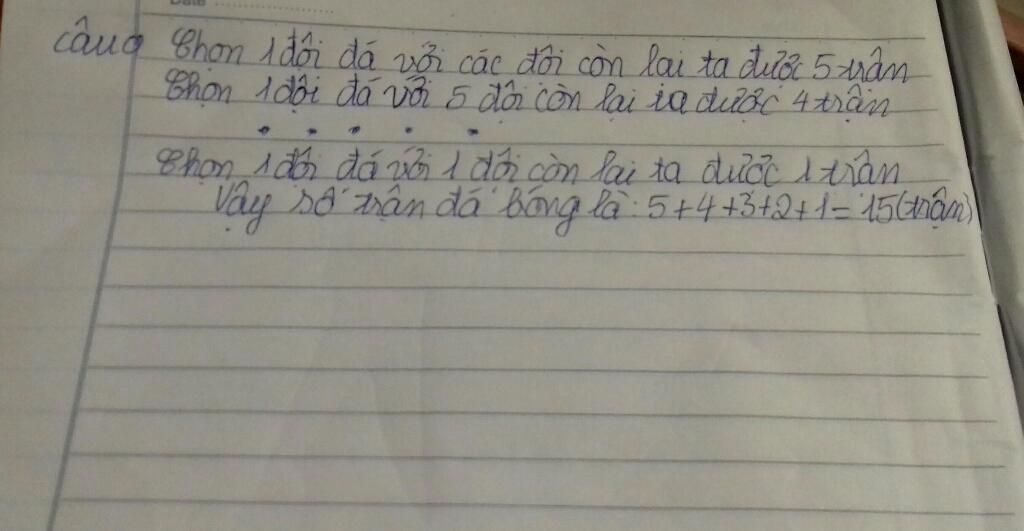 Date
câu 9 Chọn 1 đội đá với các đội còn lại ta được 5 trận
Chọn 1 đội đá với 5 đội còn lại ta được 4 trận
. . . . .
Chọn 1 đội đá với 1 đội còn lại ta được 1 trận
Vậy số trận đá bóng là: 5+4+3+2+1=15(trận)